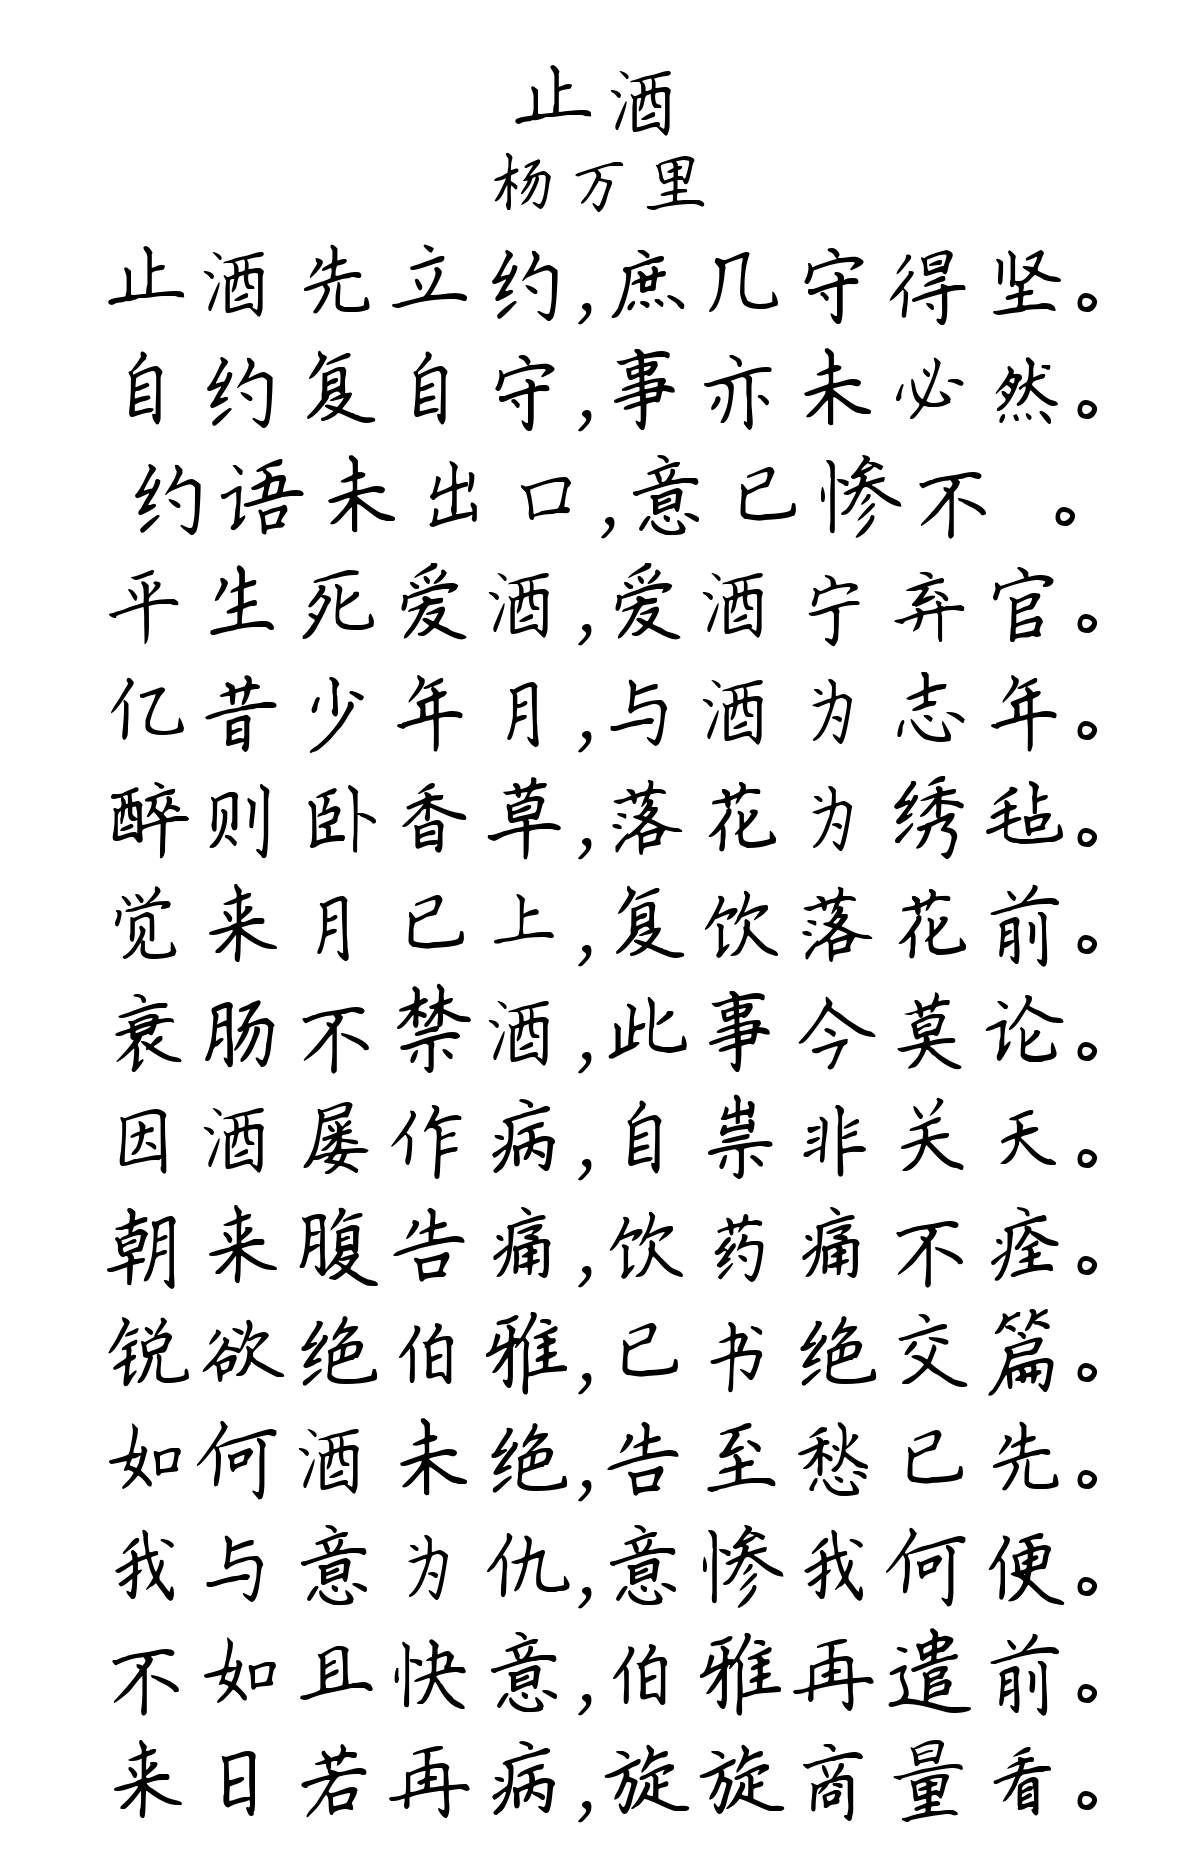 止酒
杨万里
止酒先立约,庶几守得坚。
自约复自守,事亦未必然。
约语未出口,意已惨不 。
平生死爱酒,爱酒宁弃官。
亿昔少年月,与酒为志年。
醉则卧香草,落花为绣毡。
觉来月已上,复饮落花前。
衰肠不禁酒,此事今莫论。
因酒屡作病,自祟非关天。
朝来腹告痛,饮药痛不痊。
锐欲绝伯雅,已书绝交篇。
如何酒未绝,告至愁已先。
我与意为仇,意惨我何便。
不如且快意,伯雅再遣前。
来日若再病,旋旋商量看。